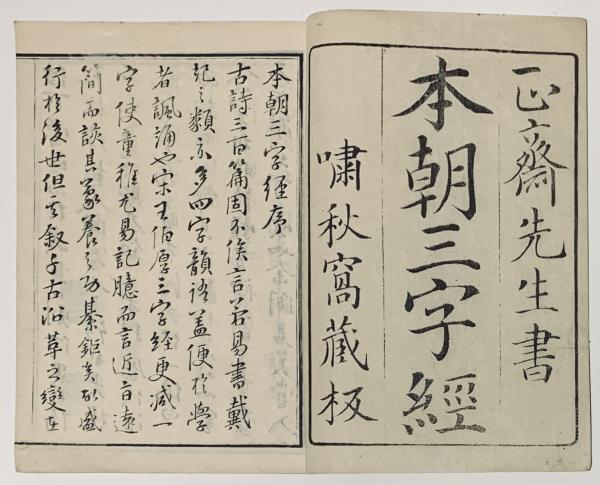 正齋先生書
本朝三字經
嘯秋窩藏板
本朝三字經序
古詩三百篇固不俟言若易書戴
記之類亦多四字韻語蓋便於學
者諷誦也宋王伯厚三字經更減一
字使童稚尤易記臆而言近旨遠
簡而該其蒙養之功綦鉅矣盛
行於後世但其叙千古沿革之變在